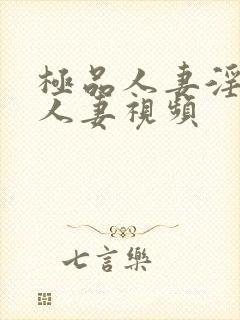 極品人妻淫
人妻視頻
七言樂